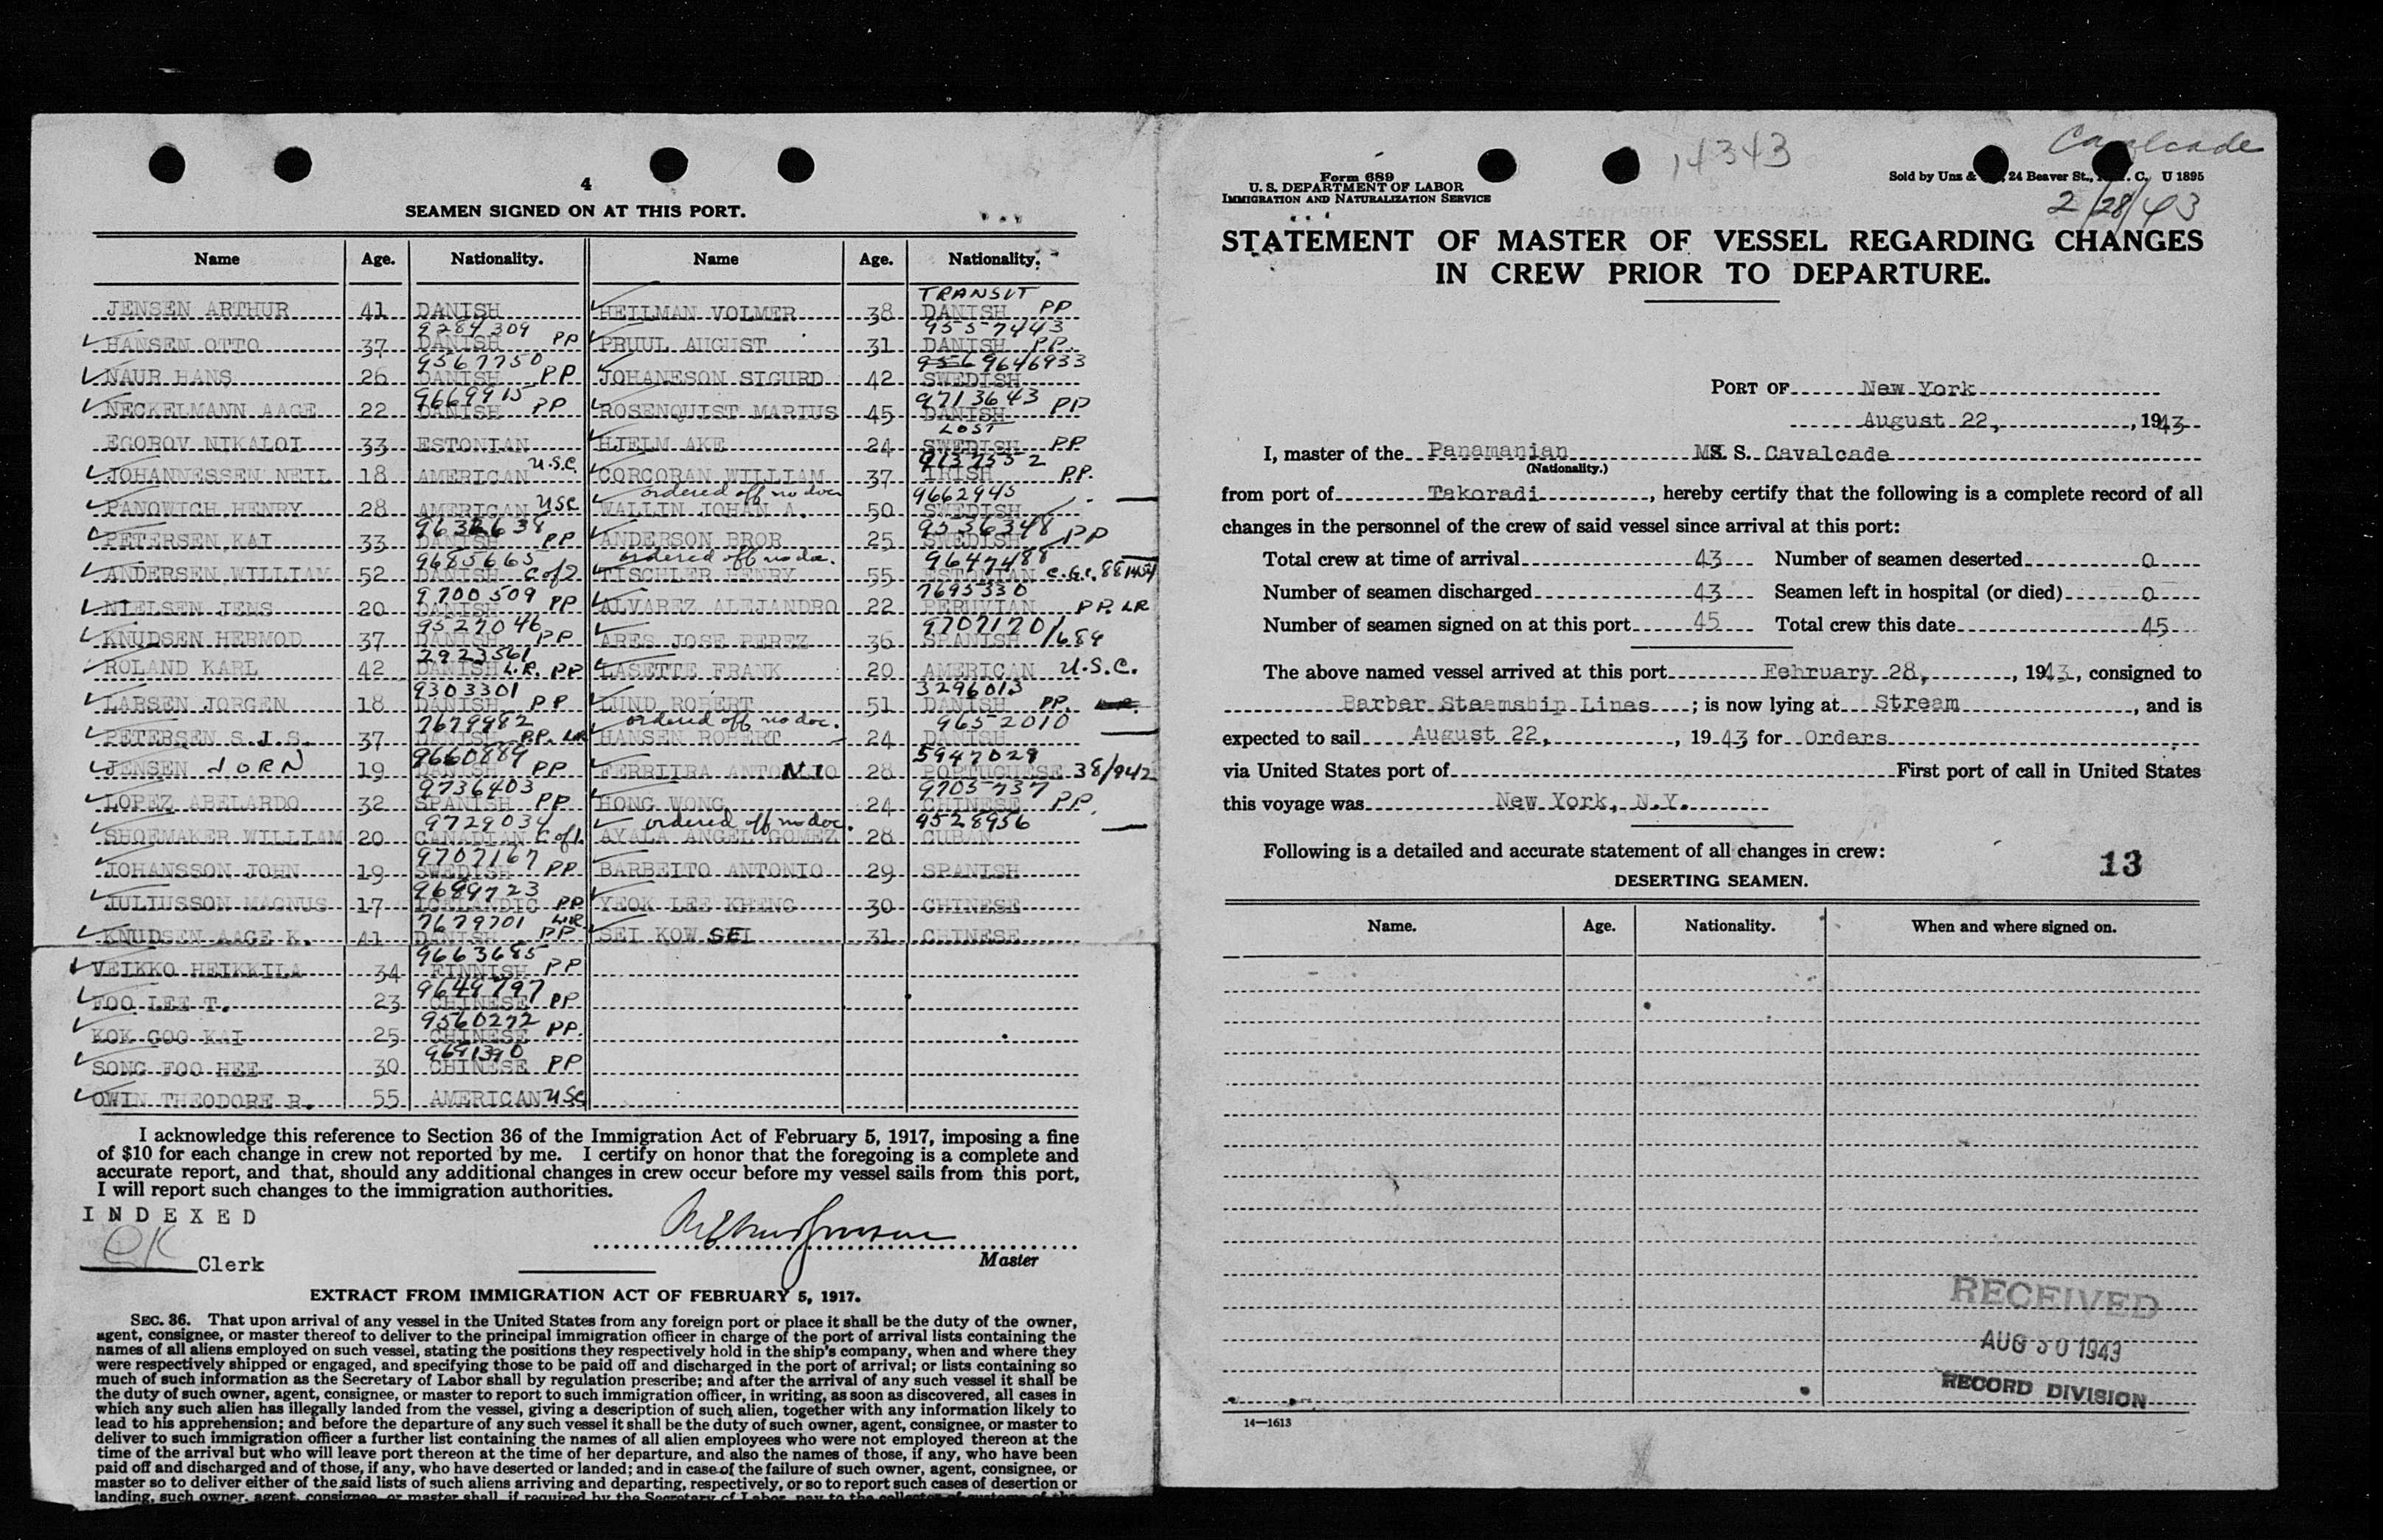 4
SEAMEN SIGNED ON AT THIS PORT.
Name Age. Nationality. Name Age. Nationality.
TRANSIT
JENSEN ARTHUR 41 DANISH HEILMAN VOLMER 38 DANISH PP
9284309 9557443
HANSEN OTTO 37 DANISH PP PRUUL AUGUST 31 DANISH PP.
9567750 956 9646933
NAUR HANS 26 DANISH PP JOHANESON SIGURD 42 SWEDISH
9669915 9713643
NECKELMANN AAGE 22 DANISH PP ROSENQUIST MARIUS 45 DANISH PP
LOST
EGOROV NIKALOI 33 ESTONIAN HJELM AKE 24 SWEDISH PP
9137552
JOHANNESSEN NEIL 18 AMERICAN U.S.C. CORCORAN WILLIAM 37 IRISH P.P.
ordered off no doc 9662945
PANOWICH HENRY 28 AMERICAN USC WALLIN JOHAN A. 50 SWEDISH
9632638 9536348
PETERSEN KAI 33 DANISH PP ANDERSON BROR 25 SWEDISH PP
9685665 ordered off no doc. 9647488
ANDERSEN WILLIAM 52 DANISH C of I TISCHLER HENRY 55 ESTONIAN C.G.C.
9700509 7695330
NIELSEN JENS 20 DANISH PP ALVAREZ ALEJANDRO 22 PERUVIAN PP. LR
9527046 9707170
KNUDSEN HERMOD 37 DANISH PP ARES JOSE PEREZ 36 SPANISH /689
2923561
ROLAND KARL 42 DANISH L.R. PP LASETTE FRANK 20 AMERICAN U.S.C.
9303301 3296013
LARSEN JORGEN 18 DANISH PP LUND ROBERT 51 DANISH PP.
7679982 ordered off no doc. 9652010
PETERSEN S.J.S. 37 DANISH P.P. LR HANSEN ROBERT 24 DANISH
9660889 5947029
JENSEN JORN 19 DANISH PP FERRIIRA ANTONIO 28 PORTUGUESE 38/942
9736403 9705737
LOPEZ ABELARDO 32 SPANISH PP HONG WONG 24 CHINESE PP.
9729034 ordered off no doc. 9528956
SHOEMAKER WILLIAM 20 CANADIAN C of I. AYALA ANGEL GOMEZ 28 CUBAN
9707167
JOHANSSON JOHN 19 SWEDISH PP BARBEITO ANTONIO 29 SPANISH
9689723
JULIUSSON MAGNUS 17 ICELANDIC PP YEOK LEE KHENG 30 CHINESE
7679701 LR
KNUDSEN AAGE K. 41 DANISH PP SEI KOW SEI 31 CHINESE
9663685
VEIKKO HEIKKILA 34 FINNISH PP
9649797
FOO LEE T. 23 CHINESE PP
9560272
KOK GOO KAI 25 CHINESE PP.
9691390
SONG FOO HEE 30 CHINESE PP
OWIN THEODORE R. 55 AMERICAN USC
I acknowledge this reference to Section 36 of the Immigration Act of February 5, 1917, imposing a fine
of $10 for each change in crew not reported by me. I certify on honor that the foregoing is a complete and
accurate report, and that, should any additional changes in crew occur before my vessel sails from this port,
I will report such changes to the immigration authorities.
INDEXED
CK Clerk
Master
EXTRACT FROM IMMIGRATION ACT OF FEBRUARY 5, 1917.
SEC. 36. That upon arrival of any vessel in the United States from any foreign port or place it shall be the duty of the owner,
agent, consignee, or master thereof to deliver to the principal immigration officer in charge of the port of arrival lists containing the
names of all aliens employed on such vessel, stating the positions they respectively hold in the ship's company, when and where they
were respectively shipped or engaged, and specifying those to be paid off and discharged in the port of arrival; or lists containing so
much of such information as the Secretary of Labor shall by regulation prescribe; and after the arrival of any such vessel it shall be
the duty of such owner, agent, consignee, or master to report to such immigration officer, in writing, as soon as discovered, all cases in
which any such alien has illegally landed from the vessel, giving a description of such alien, together with any information likely to
lead to his apprehension; and before the departure of any such vessel it shall be the duty of such owner, agent, consignee, or master to
deliver to such immigration officer a further list containing the names of all alien employees who were not employed thereon at the
time of the arrival but who will leave port thereon at the time of her departure, and also the names of those, if any, who have been
paid off and discharged and of those, if any, who have deserted or landed; and in case of the failure of such owner, agent, consignee, or
master so to deliver either of the said lists of such aliens arriving and departing, respectively, or so to report such cases of desertion or
landing, such owner, agent, consignee, or master shall, if required by the Secretary of Labor, pay to the collector of customs of the
14343
Cavalcade
Form 689
U. S. DEPARTMENT OF LABOR
IMMIGRATION AND NATURALIZATION SERVICE
Sold by Unz & 24 Beaver St., C. U 1895
2/28/43
STATEMENT OF MASTER OF VESSEL REGARDING CHANGES
IN CREW PRIOR TO DEPARTURE.
PORT OF New York
August 22, 1943
I, master of the Panamanian MS. S. Cavalcade
(Nationality.)
from port of Takoradi, hereby certify that the following is a complete record of all
changes in the personnel of the crew of said vessel since arrival at this port:
Total crew at time of arrival 43 Number of seamen deserted 0
Number of seamen discharged 43 Seamen left in hospital (or died) 0
Number of seamen signed on at this port 45 Total crew this date 45
The above named vessel arrived at this port February 28, 1943, consigned to
Barber Steamship Lines; is now lying at Stream, and is
expected to sail August 22, 1943 for Orders
via United States port of First port of call in United States
this voyage was New York, N.Y.
Following is a detailed and accurate statement of all changes in crew:
13
DESERTING SEAMEN.
Name. Age. Nationality. When and where signed on.
RECEIVED
AUG 30 1943
RECORD DIVISION
14—1613